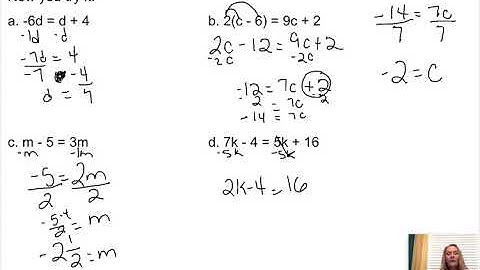 a. -6d = d + 4
-1d -d
-7d = 4
-7 -4
d = 7
b. 2(c - 6) = 9c + 2
2c - 12 = 9c + 2
-2c -2c
-12 = 7c + 2
-2 = 7c 2
-14 = 7c
-14 = 7c
7 7
-2 = c
c. m - 5 = 3m
-m -1m
-5 = 2m
2 2
= m
-2 1/2 = m
d. 7k - 4 = 5k + 16
-5k -5k
2k - 4 = 16